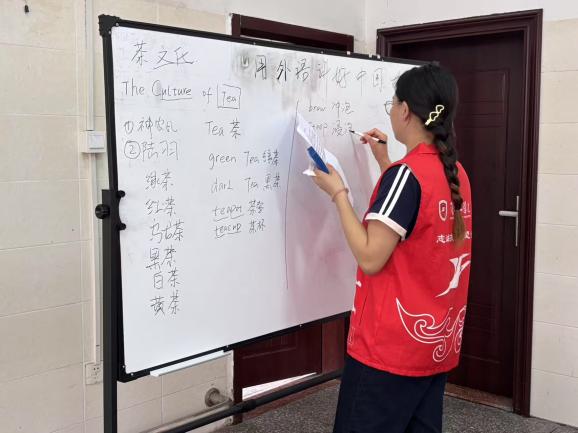 茶文化
用外语讲好中国
The Culture of Tea
①神农氏
②陆羽
绿茶
红茶
乌龙茶
黑茶
白茶
黄茶
Tea 茶
green Tea 绿茶
dark Tea 黑茶
teapot 茶壶
teacup 茶杯
brew 冲泡
浸泡